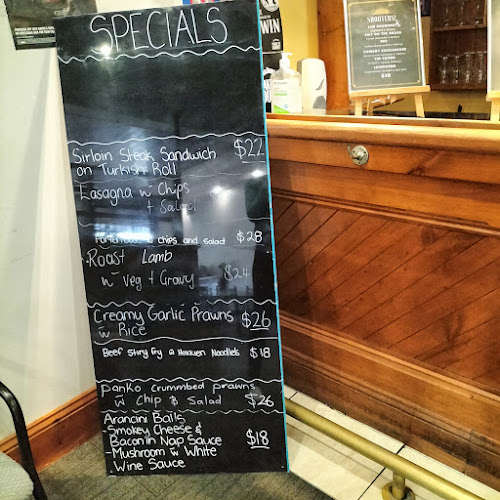 SPECIALS
Sirloin Steak Sandwich $22
on Turkish Roll
Lasagna w Chips
+ Salad
chips and salad $28
Roast Lamb
w Veg + Gravy $24
Creamy Garlic Prawns $26
w Rice
Beef Stiry Fry @ Hokkven Noodlels $18
panko crummbed prawns
w Chip & Salad $26
Arancini Balls
- Smokey Cheese &
Bacon in Nap Sauce $18
- Mushroom w White
Wine Sauce
SHOOTERS!
$10
WIN